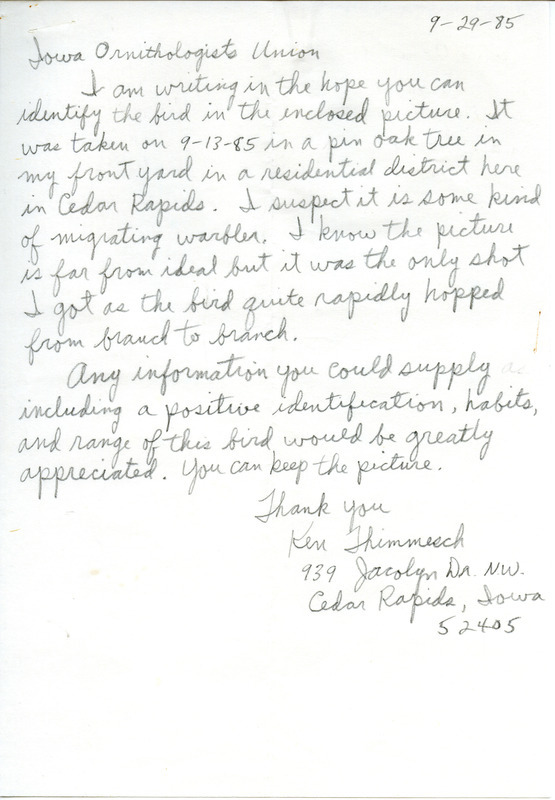 9-29-85
Iowa Ornithologists Union
I am writing in the hope you can
identify the bird in the enclosed picture. It
was taken on 9-13-85 in a pin oak tree in
my front yard in a residential district here
in Cedar Rapids. I suspect it is some kind
of migrating warbler. I know the picture
is far from ideal but it was the only shot
I got as the bird quite rapidly hopped
from branch to branch.
Any information you could supply as
including a positive identification, habits,
and range of this bird would be greatly
appreciated. You can keep the picture.
Thank you
Ken Thimmesch
939 Jacolyn Dr. NW.
Cedar Rapids, Iowa
52405